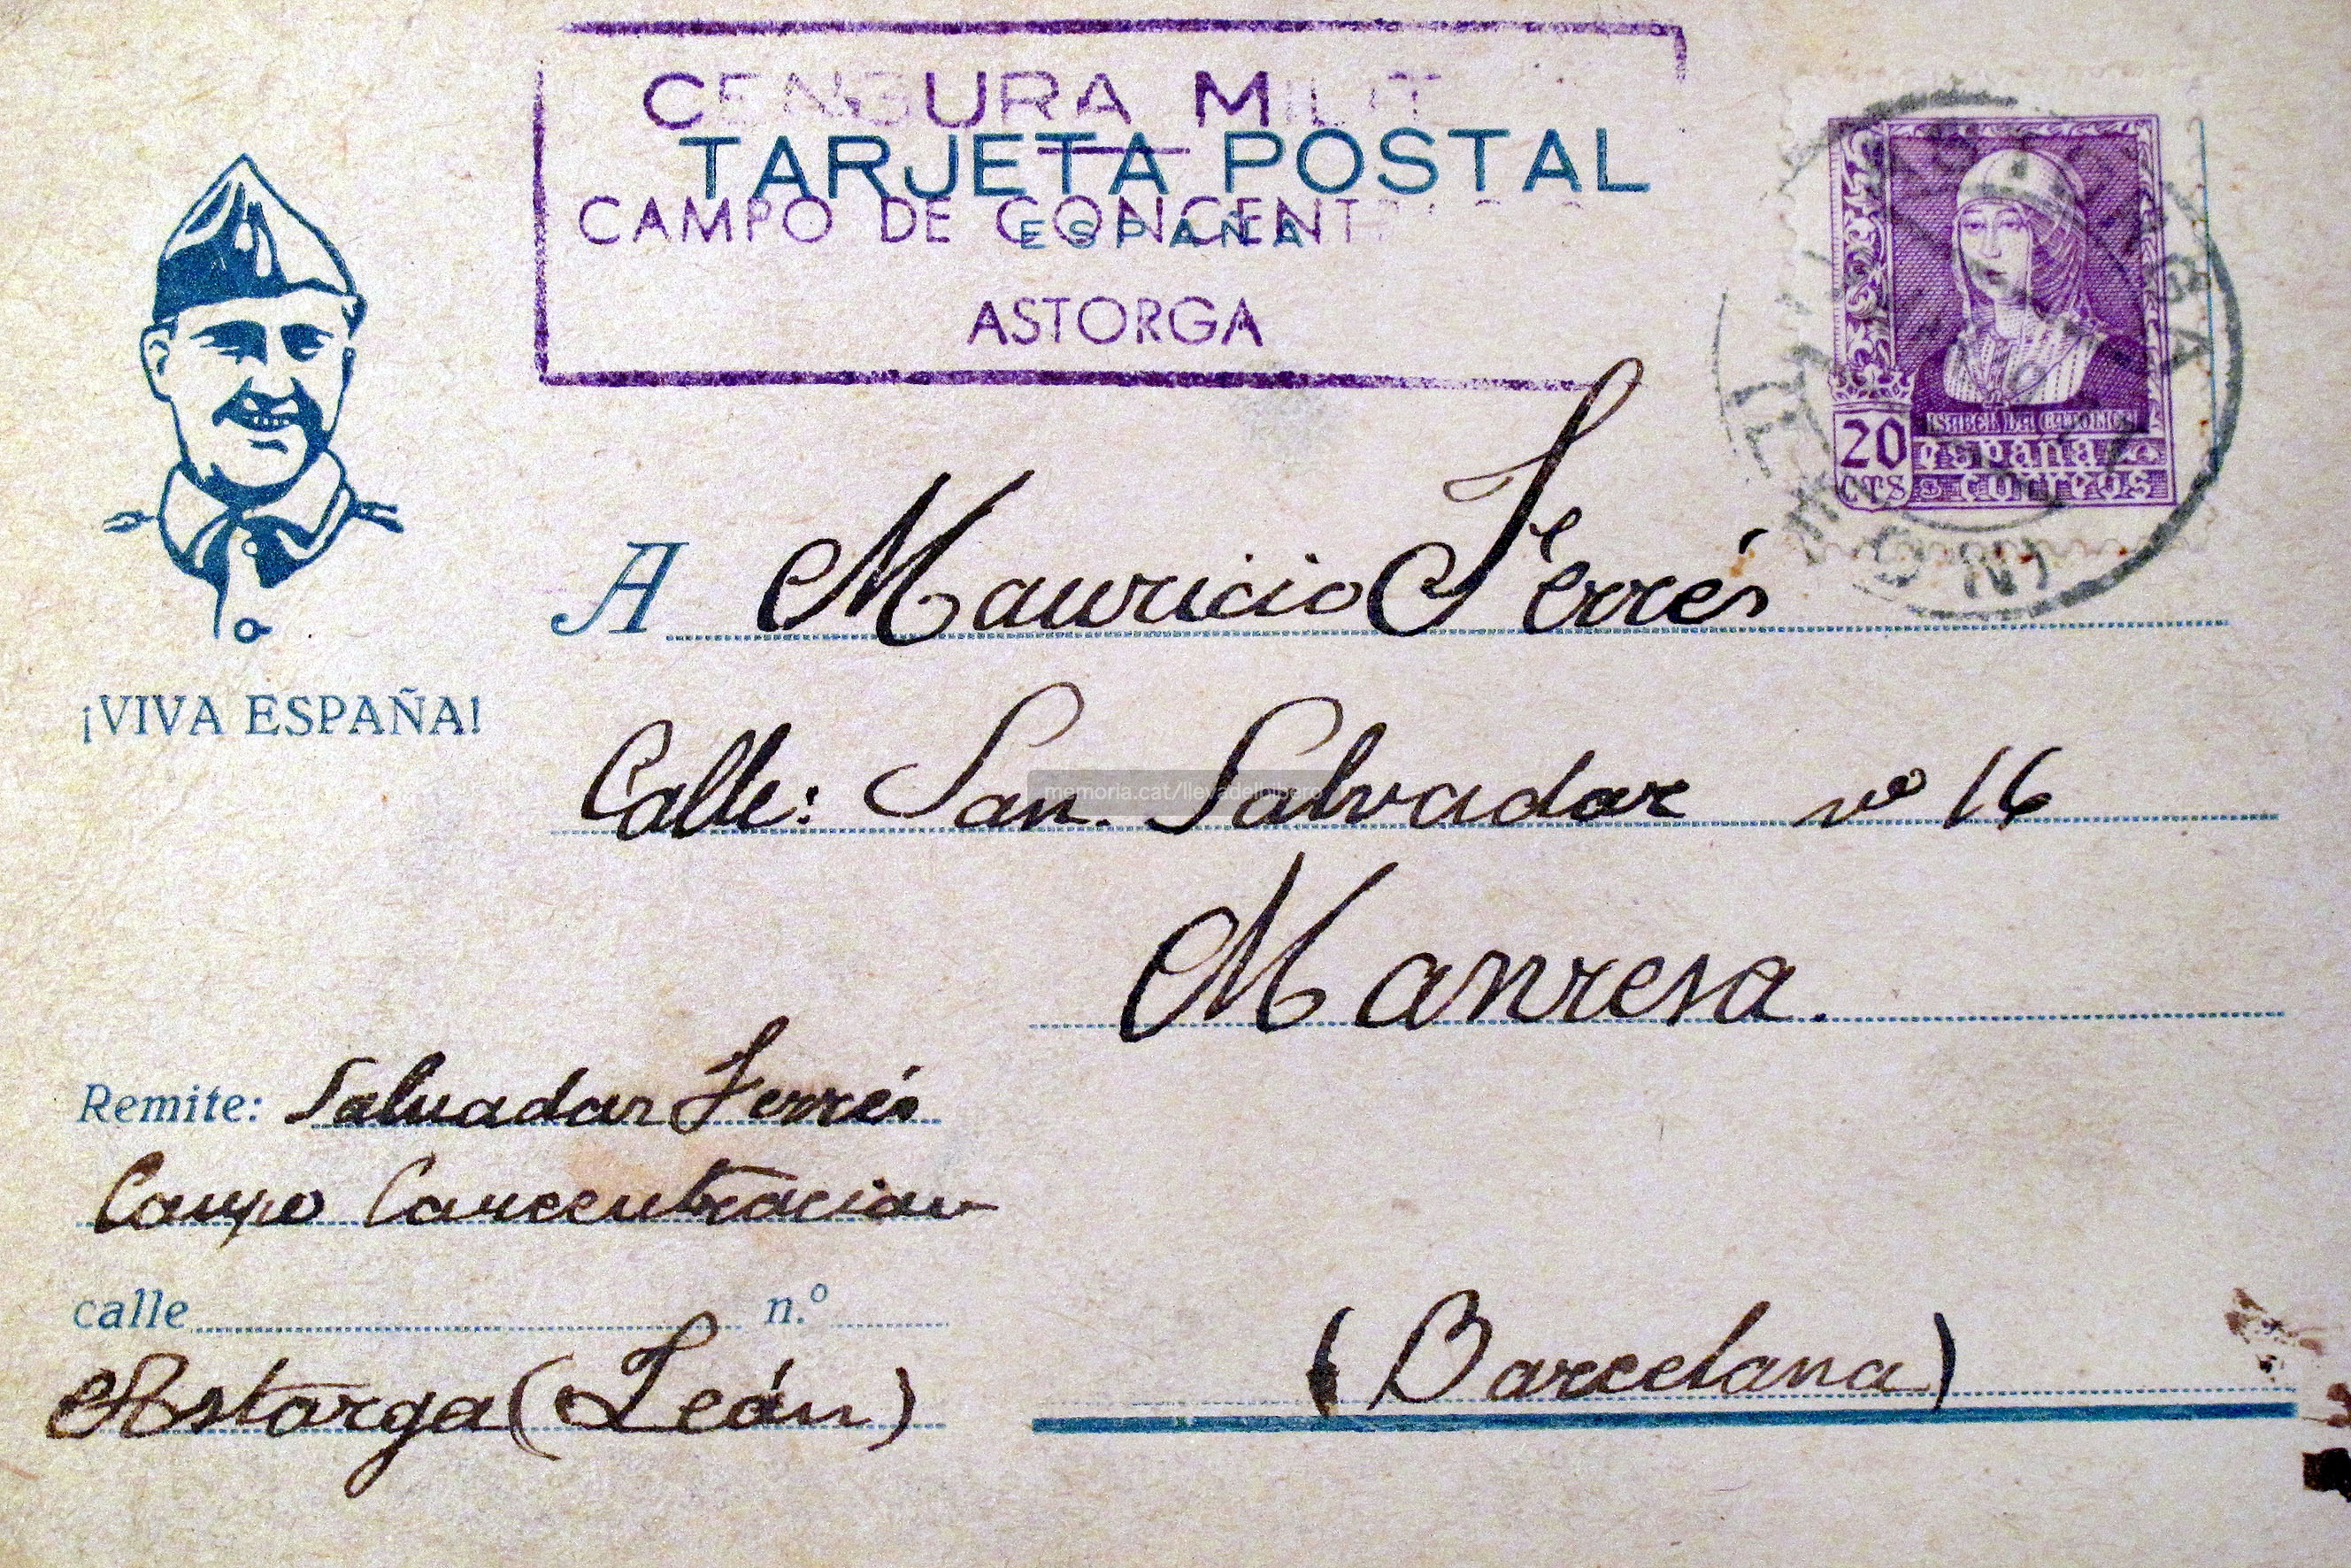 CENSURA MILIT
TARJETA POSTAL
CAMPO DE CONCENTRACIO
ESPAÑA
ASTORGA
ISABEL LA CATOLICA
20 españa
CTS correos
A Mauricio Ferrés
¡VIVA ESPAÑA!
Calle: San. Salvador nº 16
memoria.cat/llevadelbibero
Manresa.
Remite: Salvador Ferrés
Campo Concentracion
calle n.º
Astorga (León)
(Barcelona)